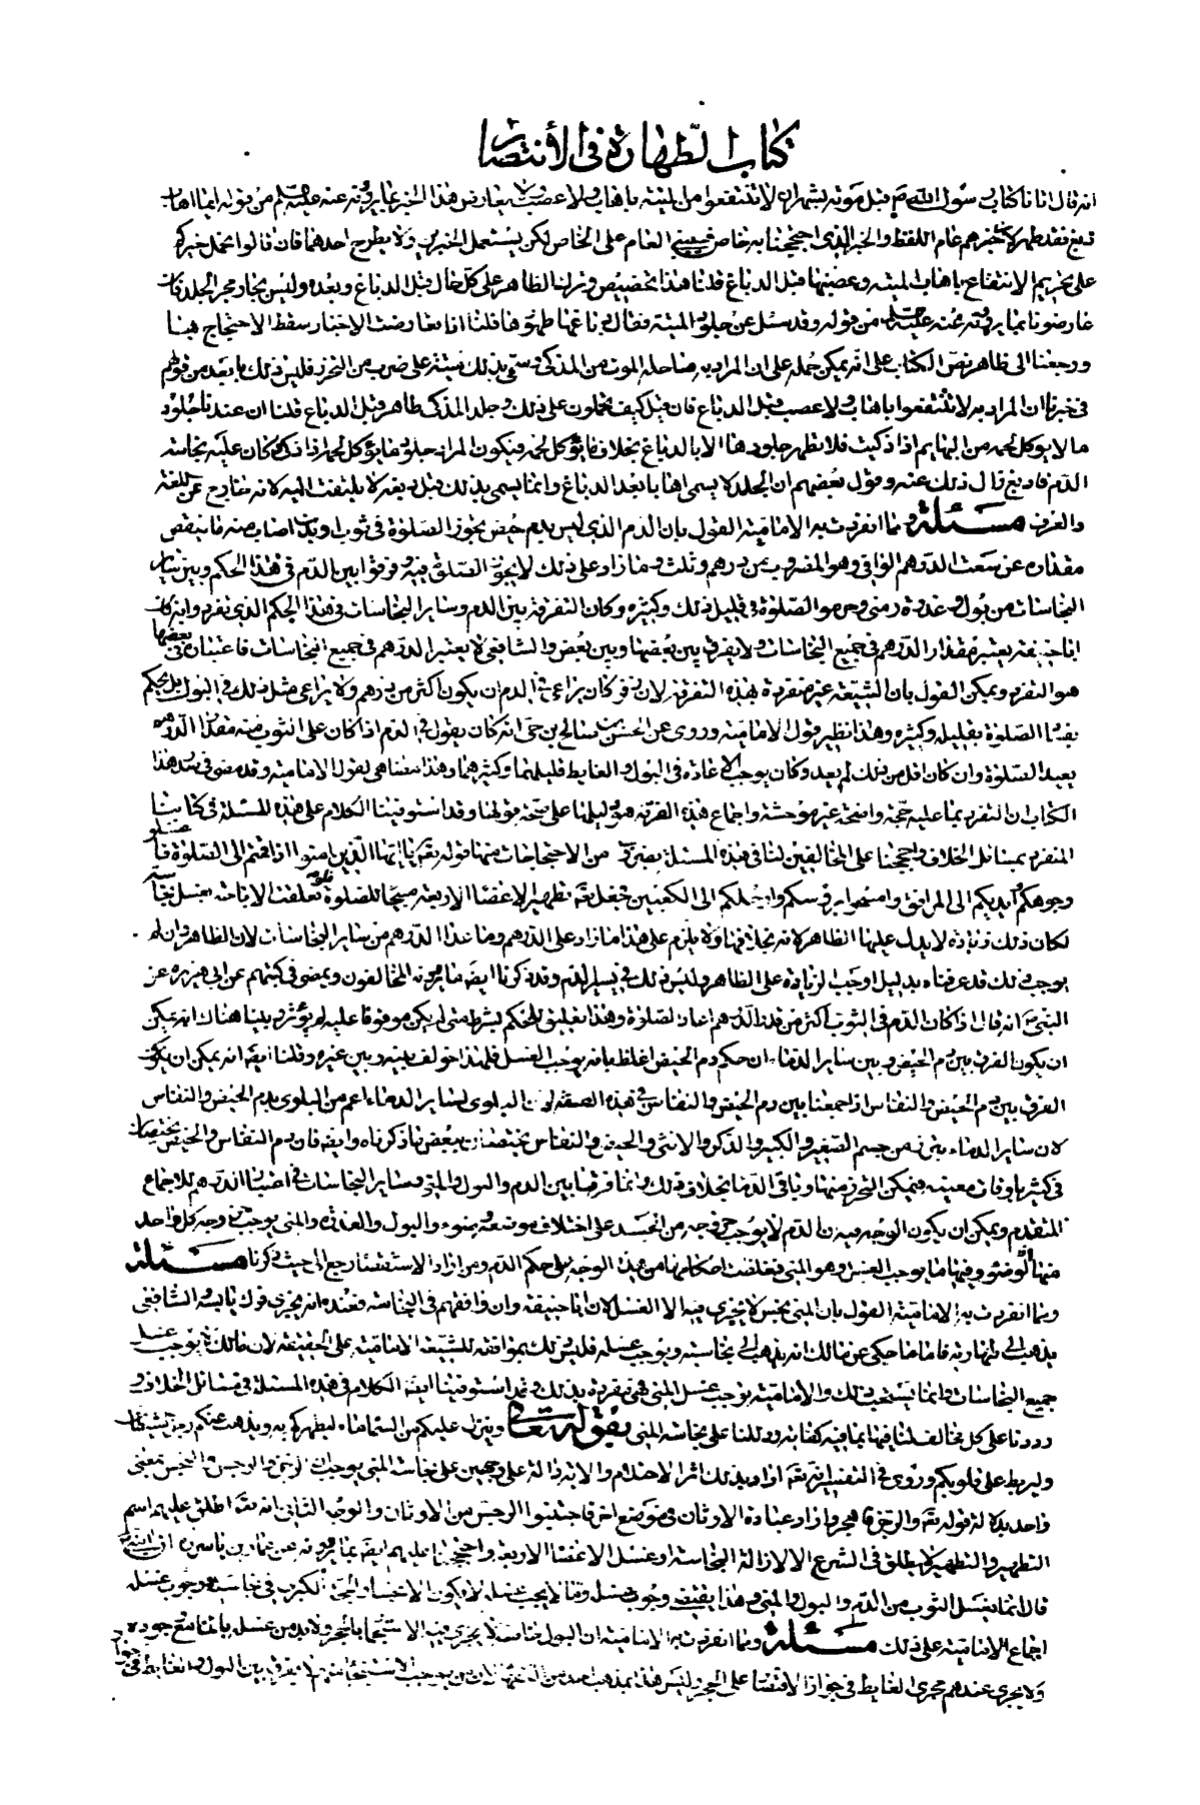 كتاب الطهارة في الأنتصار
انه قال اتانا كتاب رسول الله ص قبل موته بشهر ان لا تنتفعوا من الميتة باهاب ولا عصب يعارض هذا الخبر بما يروونه عنه عليه السلم من قوله ايما اهاب
دبغ فقد طهر لان خبرهم عام اللفظ والخبر الذي احتججنا به خاص فيبنى العام على الخاص لكي يستعمل الخبرين ولا يطرح احدهما فان قالوا نحمل خبركم
على تحريم الانتفاع باهاب الميتة وعصبها قبل الدباغ قلنا هذا تخصيص وترك الظاهر على كل حال قبل الدباغ وبعده وليس يجاوز الجلد فان
عارضونا بما يروونه عنه عليه السلم من قوله وقد سئل عن جلود الميتة فقال دباغها طهورها قلنا اذا تعارضت الاخبار سقط الاحتجاج بها
ورجعنا الى ظاهر نص الكتاب على انه يمكن حمله على ان المراد به ما حله الموت من المذكى وسمي بذلك ميتة على ضرب من التجوز فليس ذلك بابعد من قولهم
في خبرنا ان المراد به لا تنتفعوا باهاب ولا عصب قبل الدباغ فان قيل كيف تحملون على ذلك وجلد المذكى طاهر وقبل الدباغ قلنا ان عندنا جلود
ما لا يوكل لحمه من البهايم اذا ذكيت فلا تطهر جلودها الا بالدباغ بخلاف ما يؤكل لحمه فيكون المراد جلود ما يؤكل لحمه اذا ذكي كان عليه نجاسة
الدم فاذا دبغ زال ذلك عنه وقول بعضهم ان الجلد لا يسمى اهابا بعد الدباغ وانما يسمى بذلك قبل دبغه لا يلتفت اليه لانه خارج عن اللغة
والعرف مسئلة ومما انفردت به الامامية القول بان الدم الذي ليس بدم حيض تجوز الصلوة في ثوب او بدن اصابه منه ما ينقص
مقداره عن سعة الدرهم الوافي وهو المضروب من درهم وثلث وما زاد على ذلك لا يجوز الصلوة فيه وفرقوا بين الدم في هذا الحكم وبين ساير
النجاسات من بول وعذرة ومني وحرموا الصلوة في قليل ذلك وكثيره وكان التفرقة بين الدم وساير النجاسات في هذا الحكم الذي تفردوا به كان
ابا حنيفة يعتبر مقدار الدرهم في جميع النجاسات ولا يفرق بين بعضها وبين بعض والشافعي لا يعتبر الدرهم في جميع النجاسات فاعتباره في بعضها
هو التفرد ويمكن القول بان الشيعة غير منفردة بهذه التفرقة لان زفر كان يراعي في الدم ان يكون اكثر من درهم ولا يراعي مثل ذلك في البول بل يحكم
بفساد الصلوة بقليله وكثيره وهذا نظير قول الامامية وروي عن الحسن بن صالح بن حي انه كان يقول في الدم اذا كان على الثوب منه مقدار الدرهم
يعيد الصلوة وان كان اقل من ذلك لم يعد وكان يوجب الاعادة في البول والغايط قليلهما وكثيرهما وهذا مضاهي لقول الامامية وقد مضى في صدر هذا
الكتاب ان التفرد بما عليه حجة واضحة غير موحشة واجماع هذه الفرقة هو دليلنا على صحة قولنا وقد استوفينا الكلام على هذه المسئلة في كتابنا
المنفرد بمسائل الخلاف واحتججنا على المخالفين لنا في هذه المسئلة بضروب من الاحتجاجات منها قوله تعالى يا ايها الذين امنوا اذا قمتم الى الصلوة فاغسلوا
وجوهكم وايديكم الى المرافق وامسحوا برؤسكم وارجلكم الى الكعبين فجعل تعالى تطهير الاعضاء الاربعة مبيحا للصلوة فلو تعلقت الاباحة بغسل نجاسة
لكان ذلك زيادة لا يدل عليها الظاهر لانه بخلافها ولا يلزم على هذا ما زاد على الدرهم وما عدا الدرهم من ساير النجاسات لان الظاهر وان لم
يوجب ذلك فقد عرفناه بدليل اوجب الزيادة على الظاهر وليس ذلك في يسير الدم وقد ذكرنا ايضا ما يرويه المخالفون ويمضى في كتبهم عن ابي هريرة عن
النبي ص انه قال اذا كان الدم في الثوب اكثر من قدر الدرهم اعاد الصلوة وهذا تعليق للحكم بشرط متى لم يكن موقوفا عليه لم يؤثر وبينا هناك انه يمكن
ان يكون الفرق بين دم الحيض وبين ساير الدماء ان حكم دم الحيض اغلظ بانه يوجب الغسل فلهذا خولف بينه وبين غيره وقلنا ايضا انه يمكن ان يكون
الفرق بين دم الحيض والنفاس اذا جمعنا بين دم الحيض والنفاس في هذه الصفة ان البلوى لساير الدماء اعم من البلوى بدم الحيض والنفاس
لان ساير الدماء يخرج من جسم الصغير والكبير والذكر والانثى والحيض والنفاس يختصان ببعض ما ذكرناه وايضا فان دم النفاس والحيض يختصان
في كثير باوقات معينة فيمكن التحرز منها وباقي الدماء بخلاف ذلك وانما فرقنا بين الدم والبول والمني وساير النجاسات في اعتبار الدرهم للاجماع
المتقدم ويمكن ان يكون الوجه فيه ان الدم لا يوجب خروجه من الجسد على اختلاف مواضعه وضوء والبول والعذرة والمني يوجب خروج كل واحد
منها الوضوء وفيها ما يوجب الغسل وهو المني فغلظت احكامها من هذا الوجه على حكم الدم ومن اراد الاستقصاء رجع الى حيث ذكرنا مسئلة
ومما انفردت به الامامية القول بان المني نجس لا يجزي فيه الا الغسل لان ابا حنيفة وان وافقهم في النجاسة فعنده انه يجزي فرك يابسه الشافعي
يذهب الى طهارته فاما ما حكي عن مالك انه يذهب الى نجاسته ويوجب غسله فليس ذلك بموافقة للشيعة الامامية على الحقيقة لان مالكا لا يوجب غسل
جميع النجاسات وانما يستحب ذلك والامامية يوجب غسل المني فهي منفردة بذلك وقد استوفينا ايضا الكلام في هذه المسئلة في مسائل الخلاف و
رددنا على كل مخالف لنا فيها بما فيه كفاية ودللنا على نجاسة المني بقوله تعالى وينزل عليكم من السماء ماء ليطهركم به ويذهب عنكم رجز الشيطان
وليربط على قلوبكم وروي في التفسير انه تعالى اراد بذلك اثر الاحتلام والاية دالة على وجهين على نجاسة المني يوجب ان الرجز والرجس والنجس بمعنى
واحد بدلالة قوله تعالى والرجز فاهجر واراد عبادة الاوثان وفي موضع اخر فاجتنبوا الرجس من الاوثان والوجه الثاني انه تعالى اطلق عليه اسم
التطهير والتطهير لا يطلق في الشرع الا لازالة النجاسة او غسل الاعضاء الاربعة واحتججنا عليهم ايضا بما يروونه عن عمار بن ياسر ره ان النبي ص
قال انما يغسل الثوب من الدم والبول والمني وهذا يقتضي وجوب غسله وما لا يجب غسله لا يكون الا نجسا والحجة الكبرى في نجاسته ووجوب غسله
اجماع الامامية على ذلك مسئلة ومما انفردت به الامامية ان البول خاصة لا يجزي فيه الاستجمار بالحجر ولا بد من غسله بالماء مع وجوده
ولا يجري عندهم مجرى الغايط في جواز الاقتصار على الحجر وليس هذا بمذهب احد من الفقهاء لان من يوجب الاستنجاء منهم لا يفرق بين البول والغايط في جواز